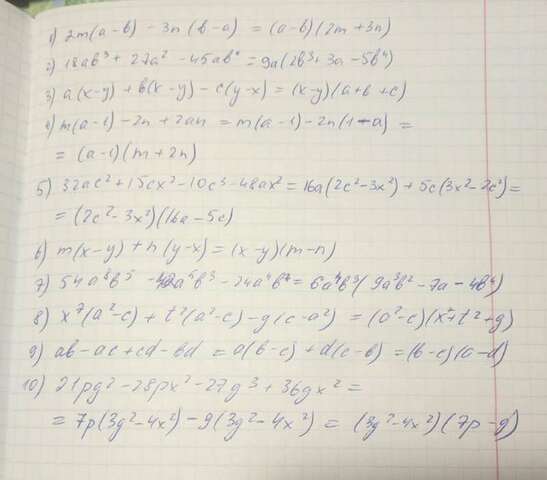 1) 2m(a-b) - 3n(b-a) = (a-b)(2m+3n)
2) 18ab³ + 27a² - 45ab⁴ = 9a(2b³+3a-5b⁴)
3) a(x-y) + b(x-y) - c(y-x) = (x-y)(a+b+c)
4) m(a-1) - 2n + 2an = m(a-1) - 2n(1-a) =
= (a-1)(m+2n)
5) 32ac² + 15cx² - 10c³ - 48ax² = 16a(2c²-3x²) + 5c(3x²-2c²) =
= (2c²-3x²)(16a-5c)
6) m(x-y) + n(y-x) = (x-y)(m-n)
7) 54a⁸b⁵ - 42a⁵b³ - 24a⁴b⁷ = 6a⁴b³(9a³b² - 7a - 4b⁴)
8) x⁷(a²-c) + t²(a²-c) - g(c-a²) = (a²-c)(x²+t²+g)
9) ab - ac + cd - bd = a(b-c) + d(c-b) = (b-c)(a-d)
10) 21pg² - 28px² - 27g³ + 36gx² =
= 7p(3g²-4x²) - 9(3g²-4x²) = (3g²-4x²)(7p-g)